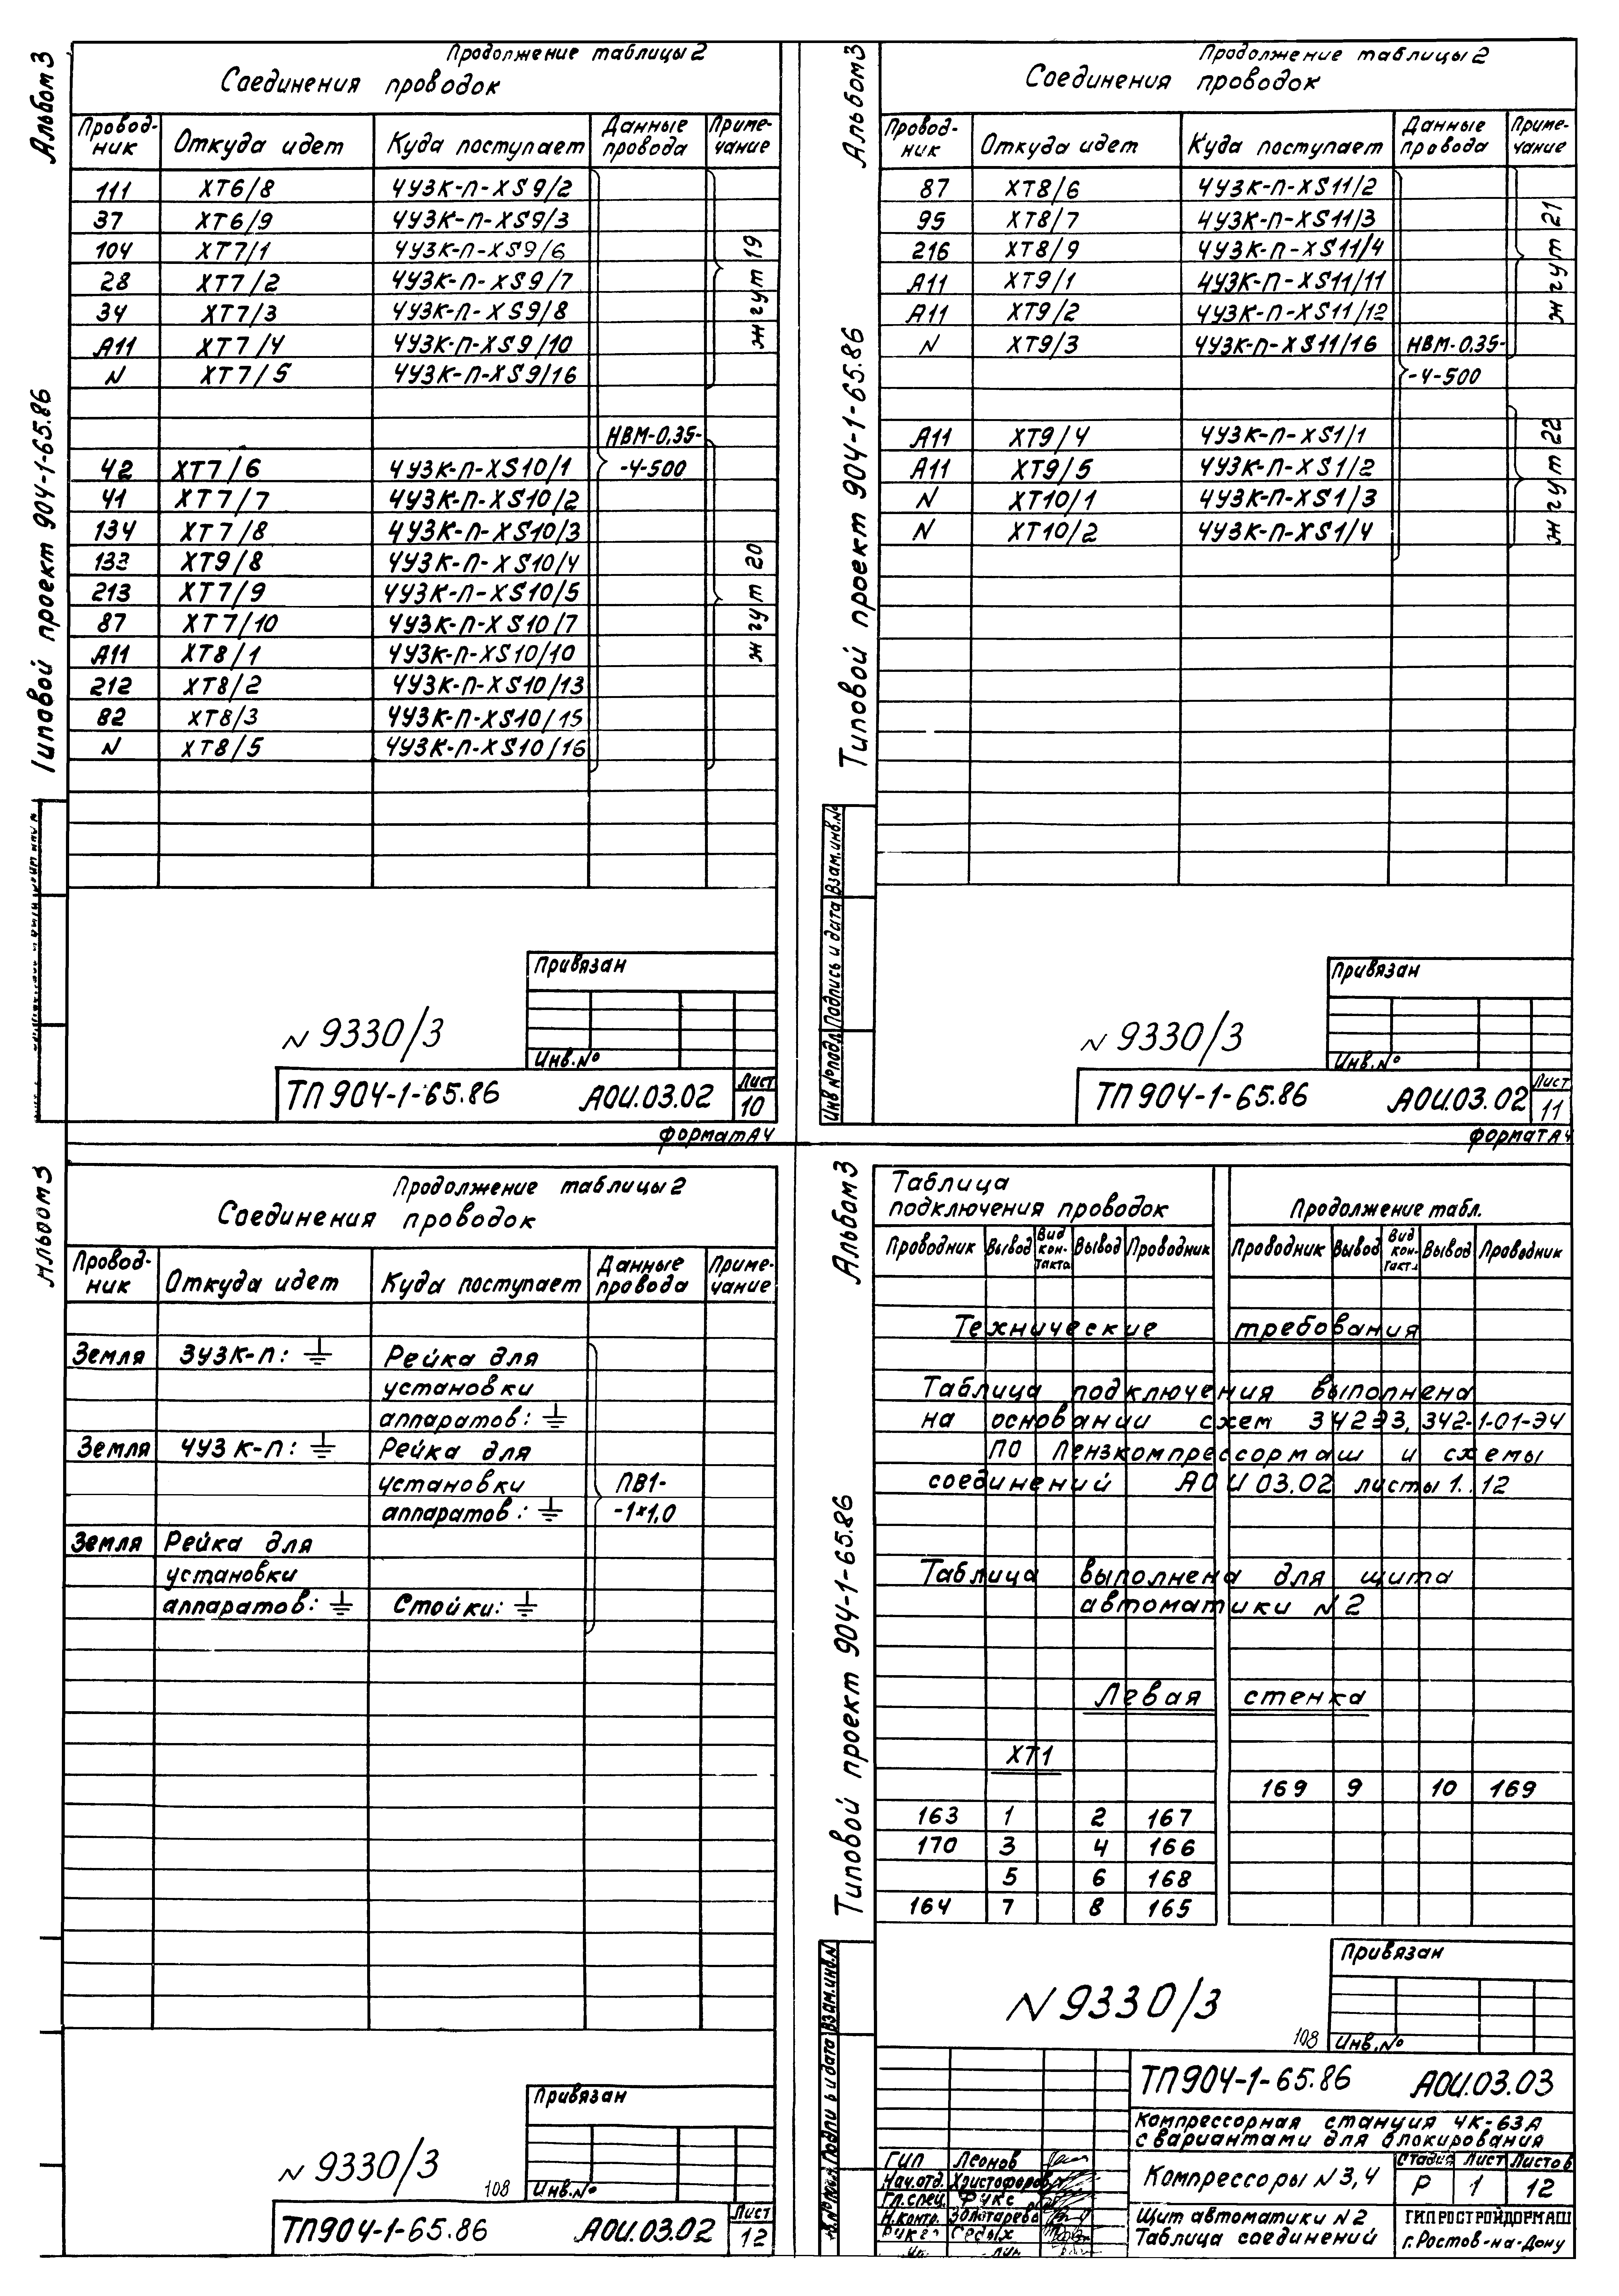 Альбом 3
Типовой проект 904-1-65.86
Продолжение таблицы 2
Соединения проводок
Провод-ник Откуда идет Куда поступает Данные провода Приме-чание
111 ХТ6/8 4У3К-П-XS9/2
37 ХТ6/9 4У3К-П-XS9/3
104 ХТ7/1 4У3К-П-XS9/6
28 ХТ7/2 4У3К-П-XS9/7
34 ХТ7/3 4У3К-П-XS9/8
А11 ХТ7/4 4У3К-П-XS9/10
N ХТ7/5 4У3К-П-XS9/16
жгут 19
НВМ-0,35-
42 ХТ7/6 4У3К-П-XS10/1 -4-500
41 ХТ7/7 4У3К-П-XS10/2
134 ХТ7/8 4У3К-П-XS10/3
133 ХТ9/8 4У3К-П-XS10/4
213 ХТ7/9 4У3К-П-XS10/5
87 ХТ7/10 4У3К-П-XS10/7
А11 ХТ8/1 4У3К-П-XS10/10
212 ХТ8/2 4У3К-П-XS10/13
82 ХТ8/3 4У3К-П-XS10/15
N ХТ8/5 4У3К-П-XS10/16
жгут 20
Привязан
N 9330/3
Инв.№
ТП 904-1-65.86 АОИ.03.02 Лист 10
формат А4
Альбом 3
Типовой проект 904-1-65.86
Продолжение таблицы 2
Соединения проводок
Провод-ник Откуда идет Куда поступает Данные провода Приме-чание
87 ХТ8/6 4У3К-П-XS11/2
95 ХТ8/7 4У3К-П-XS11/3
216 ХТ8/9 4У3К-П-XS11/4
А11 ХТ9/1 4У3К-П-XS11/11
А11 ХТ9/2 4У3К-П-XS11/12
N ХТ9/3 4У3К-П-XS11/16 НВМ-0,35-
-4-500
жгут 21
А11 ХТ9/4 4У3К-П-XS1/1
А11 ХТ9/5 4У3К-П-XS1/2
N ХТ10/1 4У3К-П-XS1/3
N ХТ10/2 4У3К-П-XS1/4
жгут 22
Инв №подл. Подпись и дата Взам.инв.№
Привязан
N 9330/3
Инв.№
ТП 904-1-65.86 АОИ.03.02 Лист 11
формат А4
Альбом 3
Продолжение таблицы 2
Соединения проводок
Провод-ник Откуда идет Куда поступает Данные провода Приме-чание
Земля 3У3К-П: ⏚ Рейка для
установки
аппаратов: ⏚
Земля 4У3К-П: ⏚ Рейка для
установки ПВ1-
аппаратов: ⏚ -1×1,0
Земля Рейка для
установки
аппаратов: ⏚ Стойки: ⏚
Привязан
N 9330/3
108
Инв.№
ТП 904-1-65.86 АОИ.03.02 Лист 12
Альбом 3
Типовой проект 904-1-65.86
Таблица
подключения проводок
Продолжение табл.
Проводник Вывод Вид кон-такта Вывод Проводник Проводник Вывод Вид кон-такта Вывод Проводник
Технические требования
Таблица подключения выполнена
на основании схем 342ЭЗ, 342-1-01-Э4
ПО Пензкомпрессормаш и схемы
соединений АОИ 03.02 листы 1..12
Таблица выполнена для щита
автоматики N 2
Левая стенка
ХТ1
169 9 10 169
163 1 2 167
170 3 4 166
5 6 168
164 7 8 165
Подпись и дата Взам.инв.N
Привязан
N 9330/3
108
Инв.№
ТП 904-1-65.86 АОИ.03.03
Компрессорная станция 4К-63А
с вариантами для блокирования
ГИП Леонов
Нач.отд. Христофоров
Гл.спец. Фукс
Н.контр. Золотарева
Седых
Компрессоры N 3,4
Стадия Лист Листов
Р 1 12
Щит автоматики N 2
Таблица соединений
ГИПРОСТРОЙДОРМАШ
г.Ростов-на-Дону